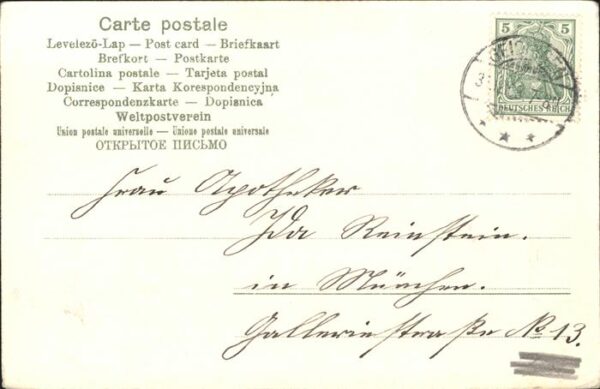 Carte postale
Levelezö-Lap — Post card — Briefkaart
Brefkort — Postkarte
Cartolina postale — Tarjeta postal
Dopisnice — Karta Korespondencyjna
Correspondenzkarte — Dopisnica
Weltpostverein
Union postale universelle — Unione postale universale
ОТКРЫТОЕ ПИСЬМО
5 5
DEUTSCHES REICH
Frau Apotheker
Ida Reinstein.
in München.
Galleriestraße № 13.